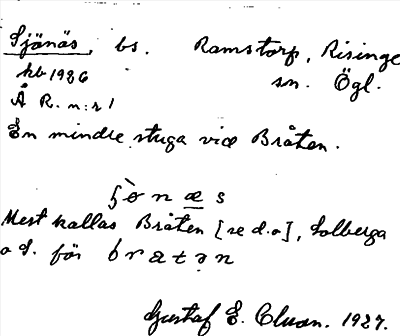 Sjönäs, bs. Ramstorp, Risinge
hb 1926 sn. Ögl.
Å R. n:r 1
En mindre stuga vid Bråten.
næs
Mest kallas Bråten [se d.o], Solberga
för bratən
Gustaf E. Clson. 1927.